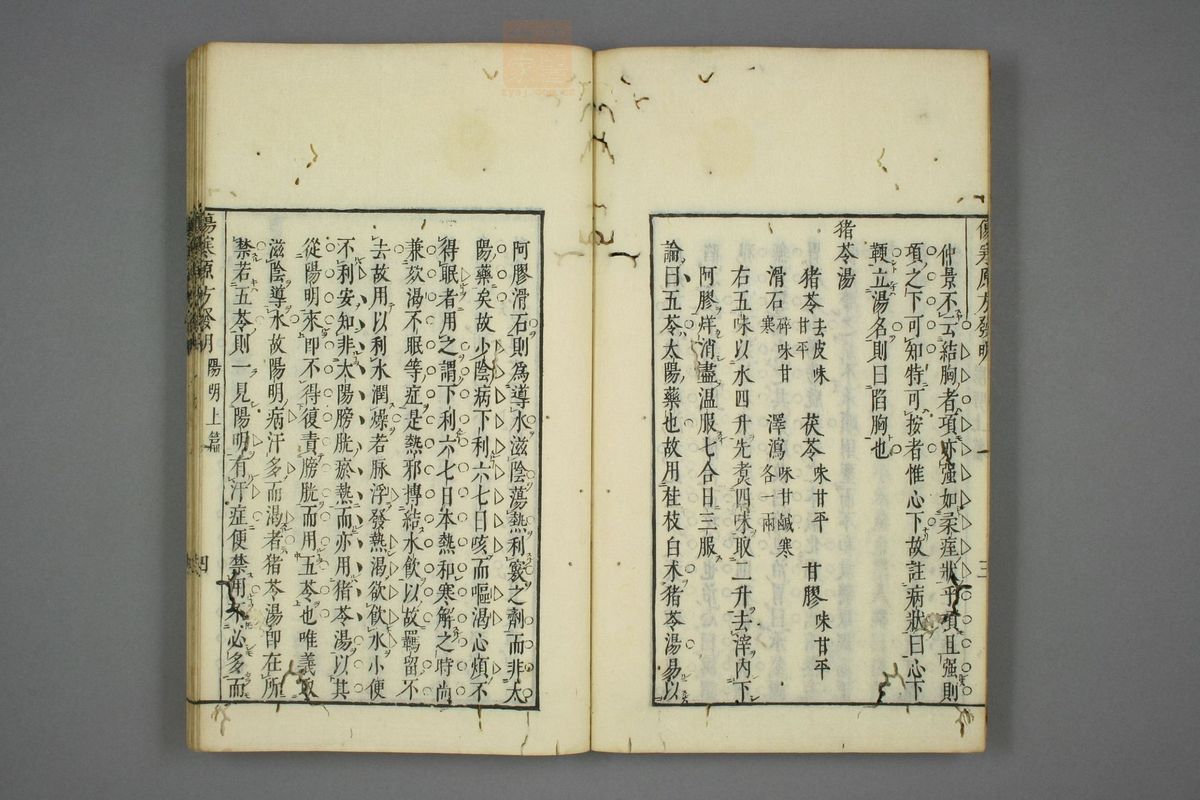 傷寒原方發明
三
仲景不云結胸者項亦强如柔痙狀乎項且强則
項之下可知特可按者惟心下故註病狀曰心下
鞕立湯名則曰陷胸也
猪苓湯
猪苓去皮味甘平 茯苓味甘平 甘膠味甘平
滑石碎味甘寒 澤瀉味甘鹹寒各一兩
右五味以水四升先煑四味取二升去滓內下
阿膠烊消盡温服七合日三服
論曰五苓太陽藥也故用桂枝白术猪苓湯易以
阿膠滑石則爲導水滋陰蕩熱利竅之劑而非太
陽藥矣故少陰病下利六七日咳而嘔渴心煩不
得眠者用之謂下利六七日本熱和寒解之時尚
兼欬渴不眠等症是熱邪搏結水飲以故羈留不
去故用以利水潤燥若脉浮發熱渴欲飲水小便
不利安知非太陽膀胱瘀熱而亦用猪苓湯以其
從陽明來即不得復責膀胱而用五苓也唯義取
滋陰導水故陽明病汗多而渴者猪苓湯即在所
禁若五苓則一見陽明有汗症便禁用不必多而
傷寒原方發明
陽明上篇
四